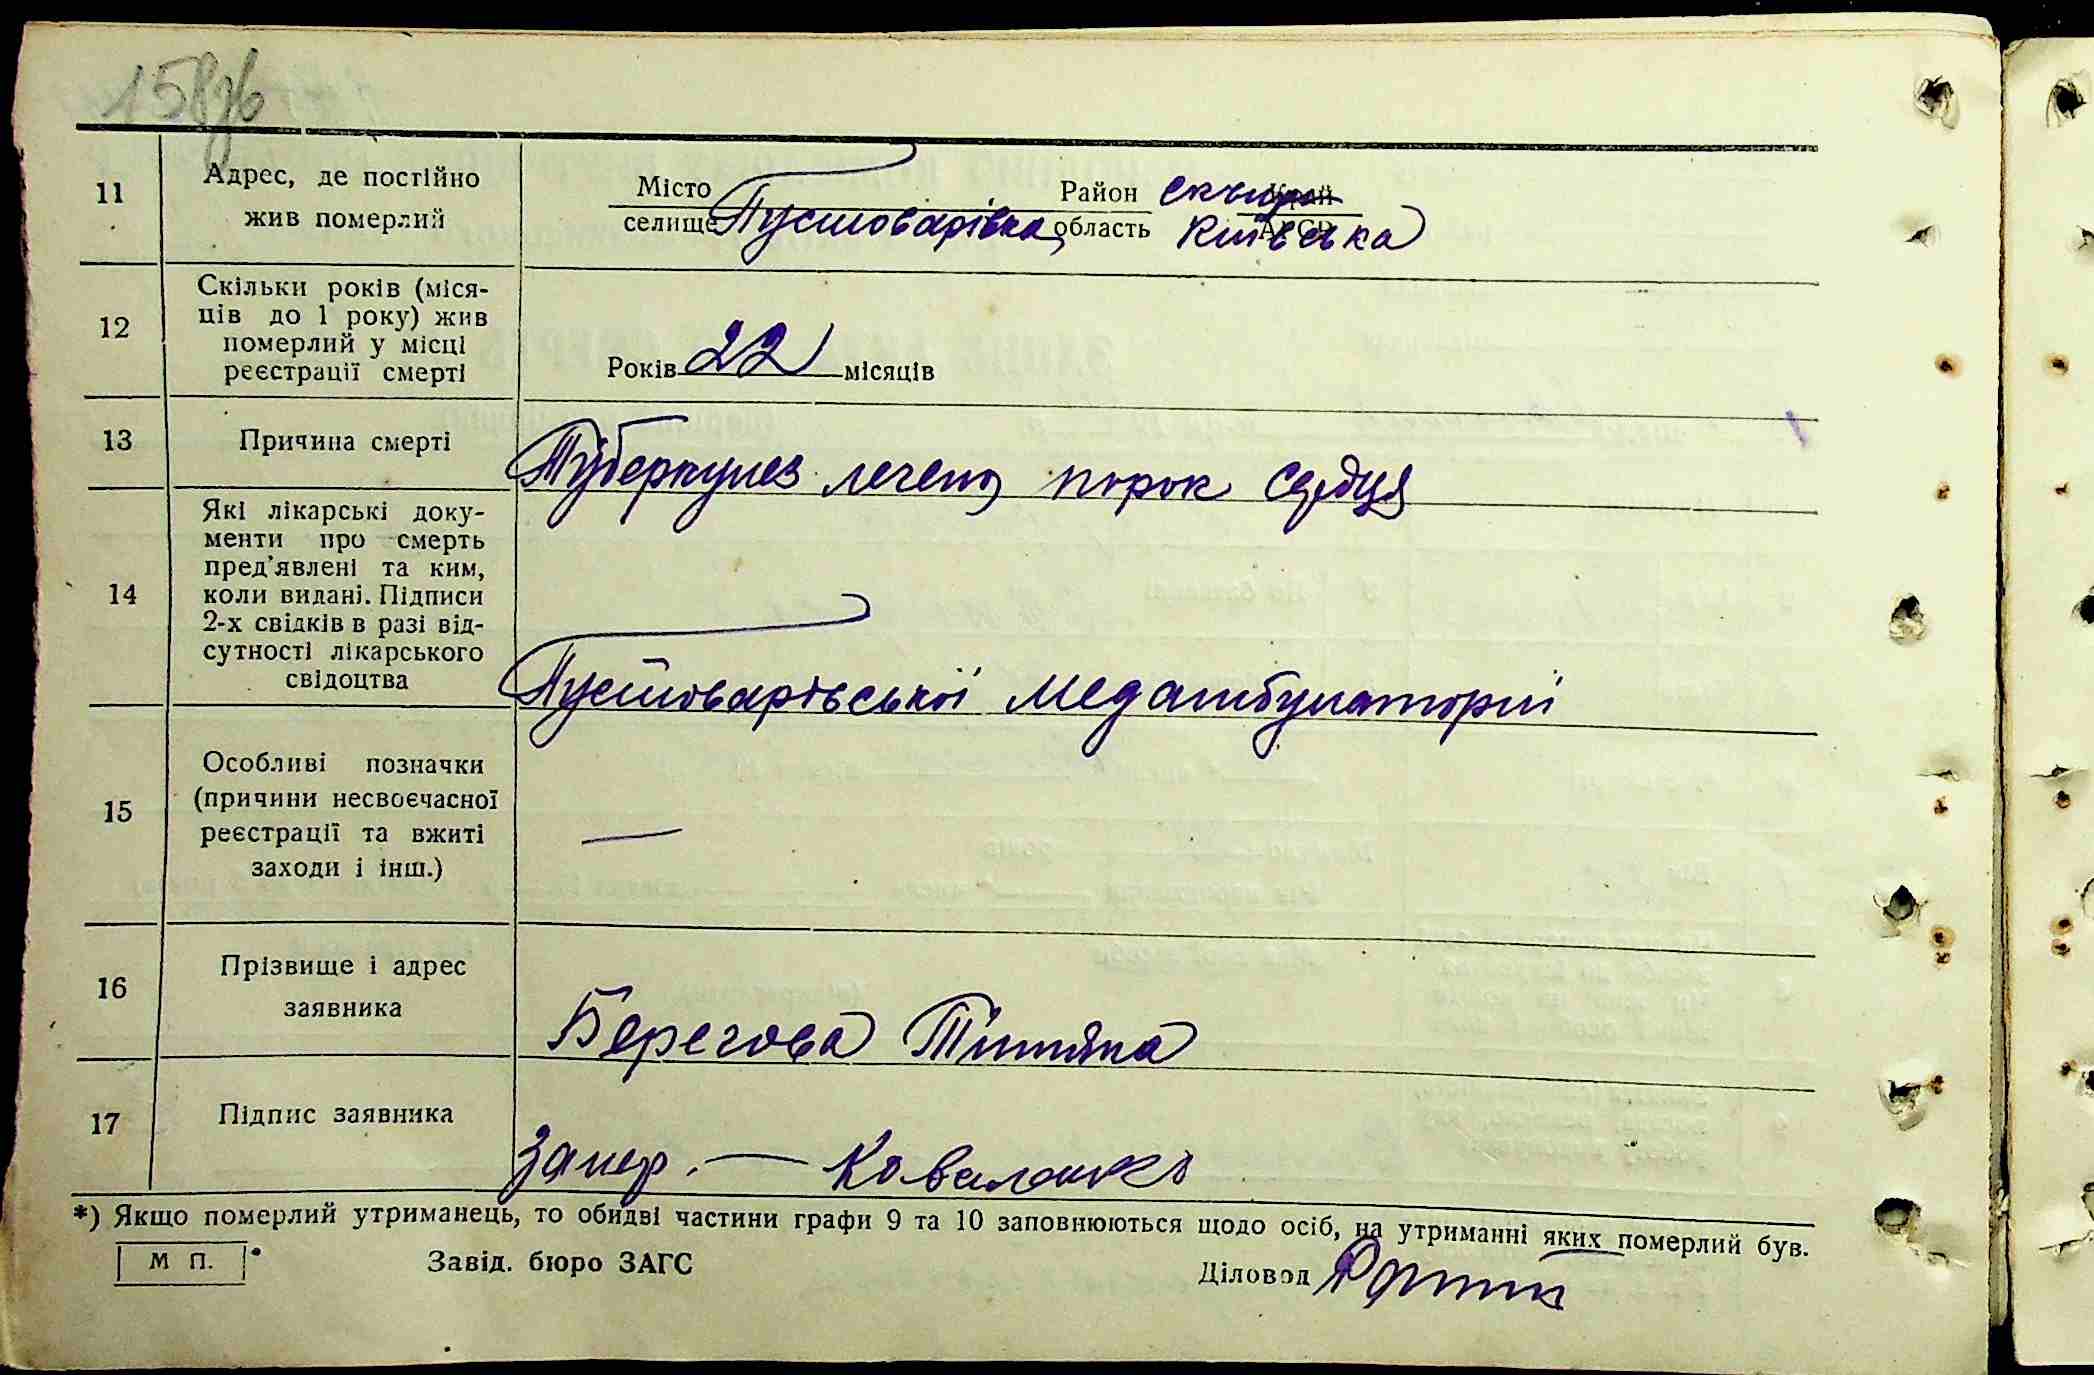 158зв
11 Адрес, де постійно жив померлий
Місто Район Сквир Край
селище Пустоварівка область Київська АРСР
12 Скільки років (міся-
ців до 1 року) жив
померлий у місці
реєстрації смерті
Років 22 місяців
13 Причина смерті
Туберкулез легень порок сердця
14 Які лікарські доку-
менти про смерть
пред’явлені та ким,
коли видані. Підписи
2-х свідків в разі від-
сутності лікарського
свідоцтва
Пустоварівської медамбулаторії
15 Особливі позначки
(причини несвоєчасної
реєстрації та вжиті
заходи і інш.)
—
16 Прізвище і адрес
заявника
Берегова Титяна
17 Підпис заявника
—
*) Якщо померлий утриманець, то обидві частини графи 9 та 10 заповнюються щодо осіб, на утриманні яких померлий був.
М П. Завід. бюро ЗАГС Діловод